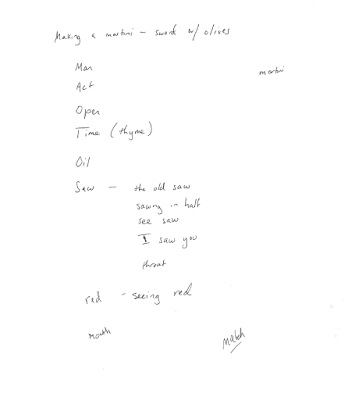 Making a martini - sword w/ olives
Man
martini
Act
Open
Time (thyme)
Oil
Saw - the old saw
sawing in half
see saw
I saw you
throat
red - seeing red
mouth